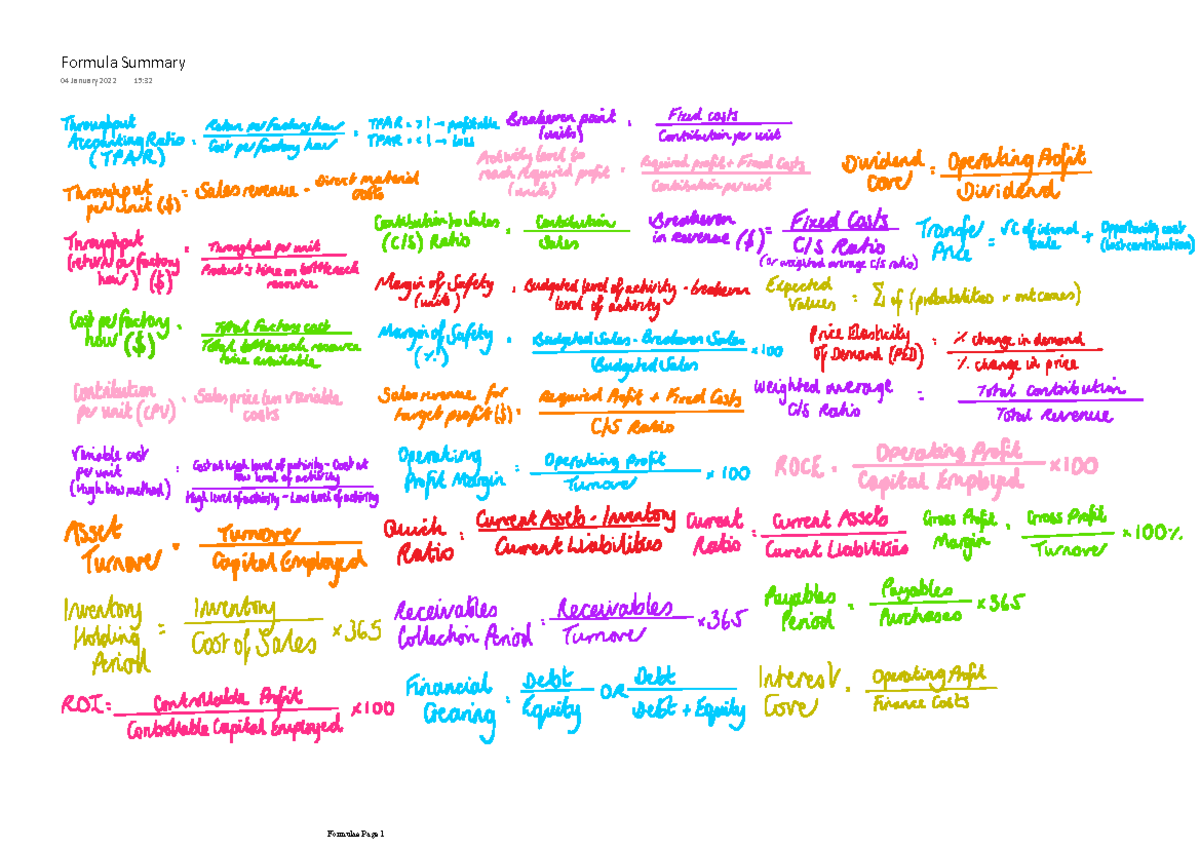 Formula Summary
04 January 2022 15:32
Throughput Accounting Ratio (TPAR) = Return per factory hour / Cost per factory hour = TPAR = >1 → profitable
TPAR = <1 → loss
Breakeven point (units) = Fixed costs / Contribution per unit
Activity level to reach required profit (units) = Required profit + Fixed Costs / Contribution per unit
Dividend Cover = Operating Profit / Dividend
Throughput per unit ($) = Sales revenue - Direct material costs
Contribution to Sales (C/S) Ratio = Contribution / Sales
Breakeven in revenue ($) = Fixed Costs / C/S Ratio
(or weighted average C/S ratio)
Transfer Price = VC of internal sale + Opportunity cost (lost contribution)
Throughput (return per factory hour) ($) = Throughput per unit / Product's time on bottleneck resource
Margin of Safety (units) = Budgeted level of activity - breakeven level of activity
Expected Values = Σ of (probabilities × outcomes)
Cost per factory hour ($) = Total factory cost / Total bottleneck resource time available
Margin of Safety (%) = Budgeted Sales - Breakeven Sales / Budgeted Sales × 100
Price Elasticity of Demand (PED) = % change in demand / % change in price
Contribution per unit (CPU) = Sales price less variable costs
Sales revenue for target profit ($) = Required Profit + Fixed Costs / C/S Ratio
Weighted average C/S Ratio = Total Contribution / Total Revenue
Variable cost per unit (High low method) = Cost at high level of activity - Cost at low level of activity / High level of activity - Low level of activity
Operating Profit Margin = Operating Profit / Turnover × 100
ROCE = Operating Profit / Capital Employed × 100
Asset Turnover = Turnover / Capital Employed
Quick Ratio = Current Assets - Inventory / Current Liabilities
Current Ratio = Current Assets / Current Liabilities
Gross Profit Margin = Gross Profit / Turnover × 100%
Inventory Holding Period = Inventory / Cost of Sales × 365
Receivables Collection Period = Receivables / Turnover × 365
Payables Period = Payables / Purchases × 365
ROI = Controllable Profit / Controllable Capital Employed × 100
Financial Gearing = Debt / Equity OR Debt / Debt + Equity
Interest Cover = Operating Profit / Finance Costs
Formulas Page 1